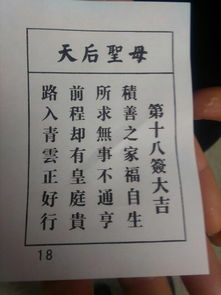 天后聖母
第十八簽大吉
積善之家福自生
所求無事不通亨
前程却有皇庭貴
路入青雲正好行
18